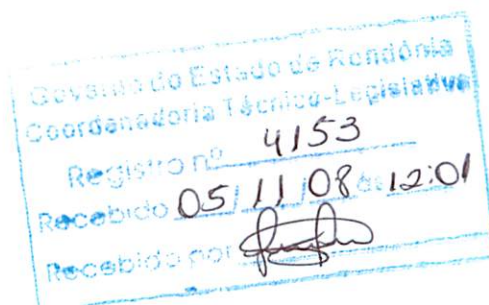 Governo do Estado de Rondônia
Coordenadoria Técnico-Legislativa
Registro nº 4153
Recebido 05/11/08 às 12:01
Recebido por